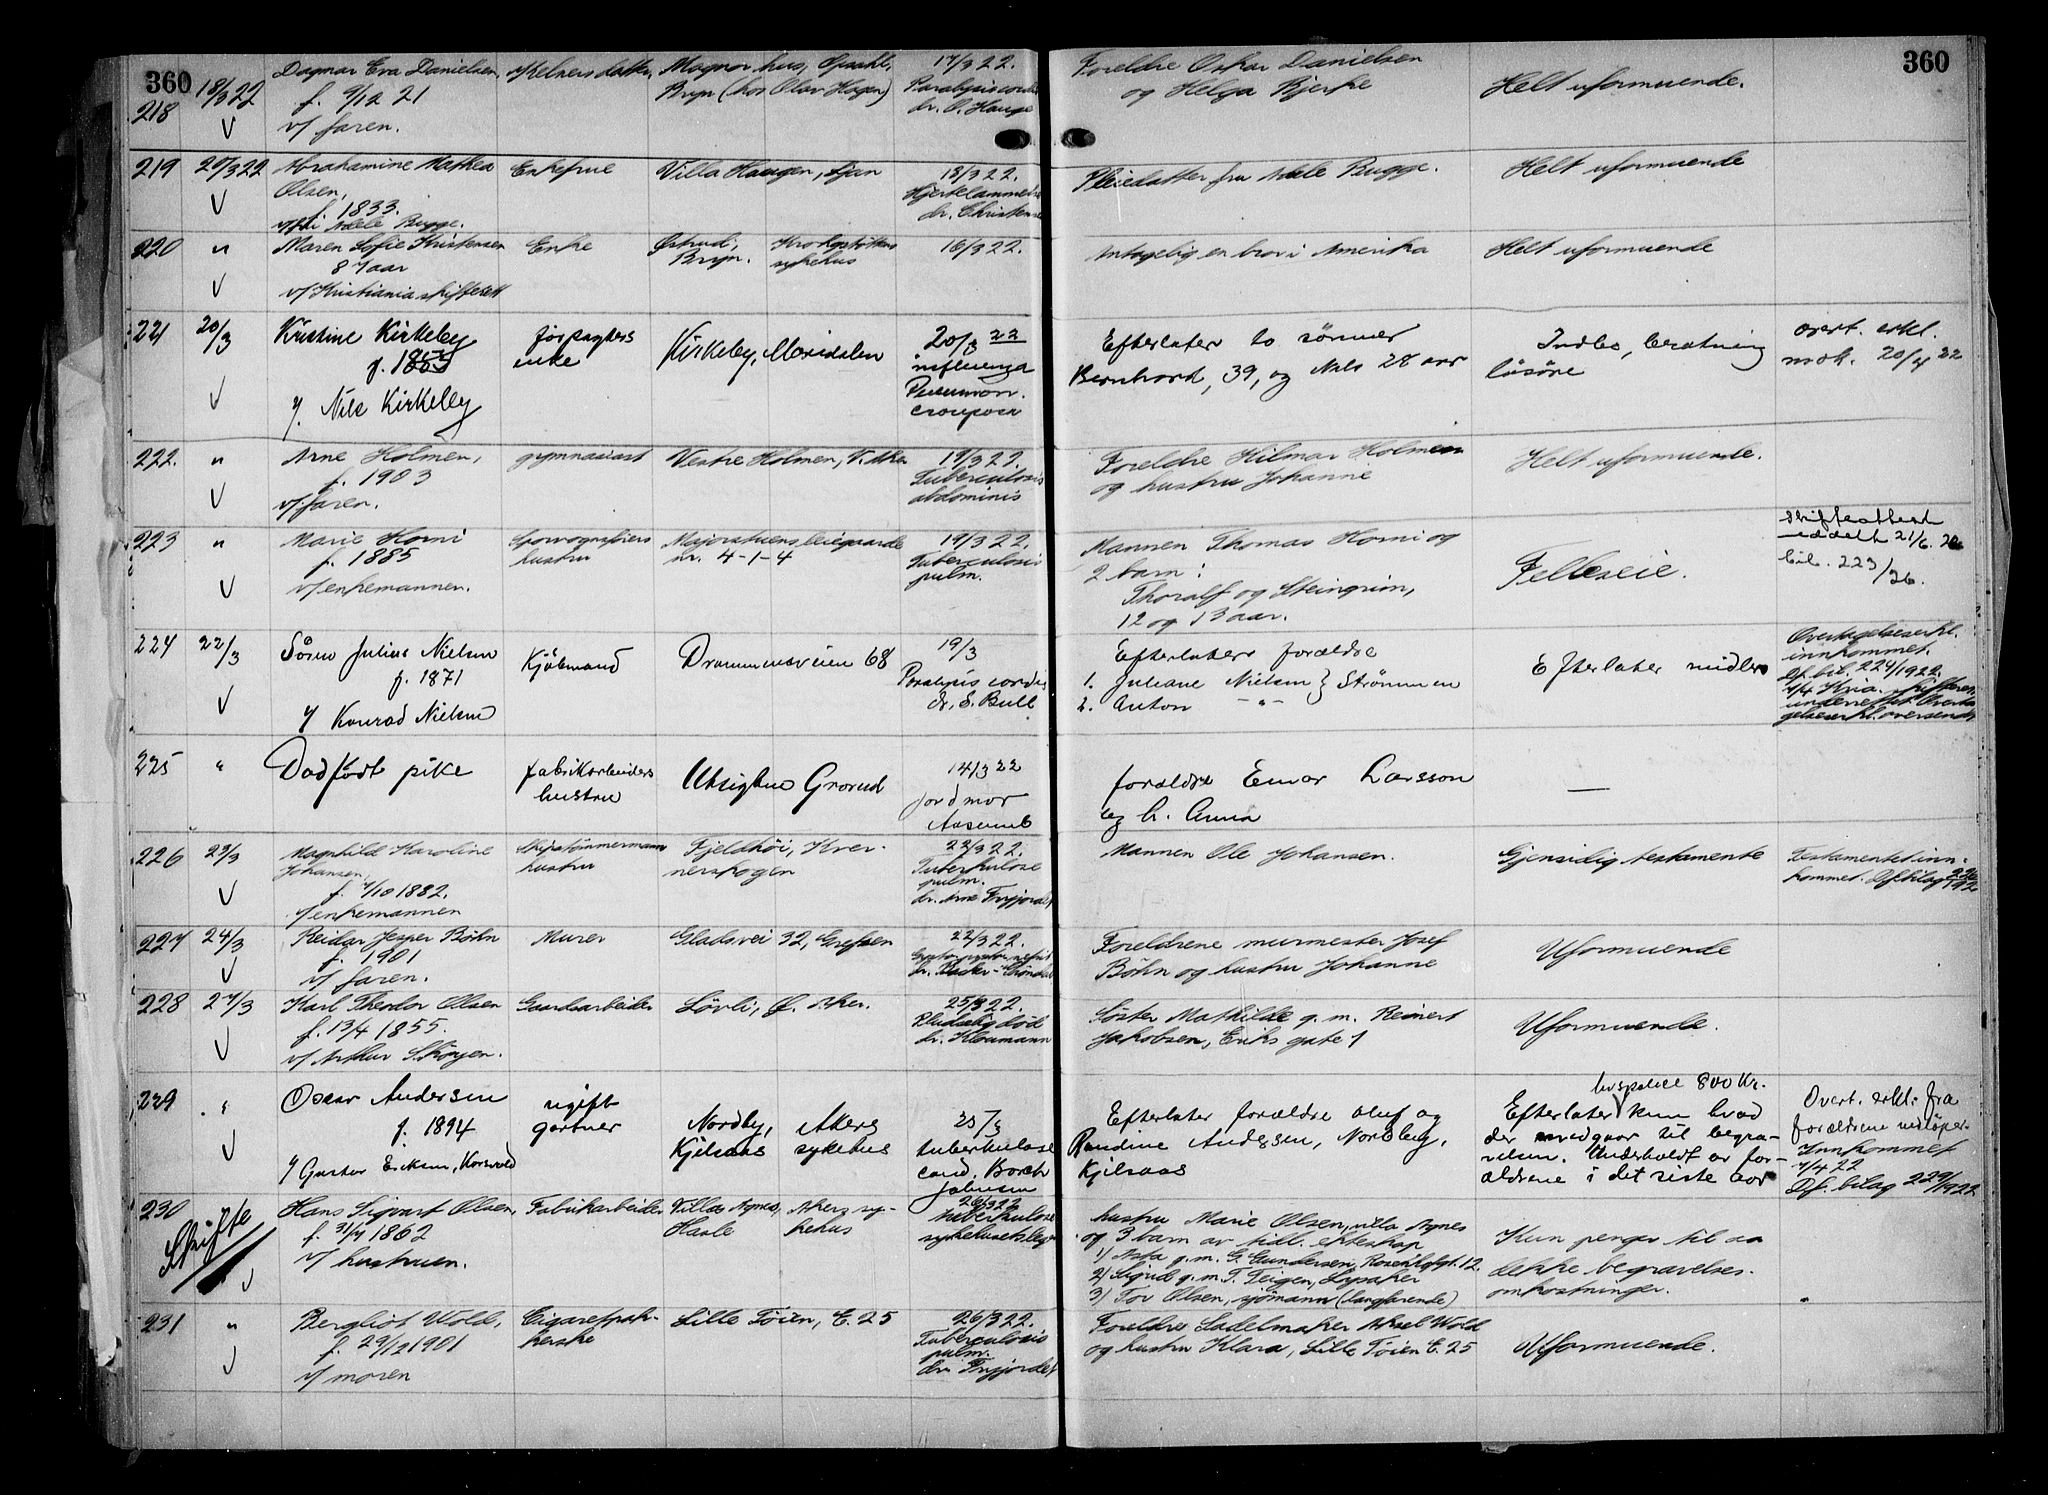 360
360
218
18/3 22
Dagmar Eva Danielsen,
f. 9/12 21
v/ faren.
Kelners datter,
Magnor hus, Opsahl,
Bryn (hos Olav Hagen)
17/3 22.
Paralysis cordis
dr. O. Hauge
Foreldre Oskar Danielsen
og Helga Bjerke
Helt uformuende.
219
20/3 22
Abrahamine Mathea
Olsen,
f. 1833.
v/ fru Adele Bugge.
Enkefrue
Villa Haugen, Ljan
18/3 22.
Hjertelammelse
dr. Christensen
Pleiedatter fru Adele Bugge.
Helt uformuende
220
"
Maren Sofie Kristensen
87 aar
v/ Kristiania skifterett
Enke
Østrud,
Bryn.
Krohgstøttens
sykehus
16/3 22.
Antagelig en bror i Amerika
Helt uformuende
221
20/3
Kristine Kirkeby
f. 1853
v/ Nils Kirkeby
forpagters
enke
Kirkeby, Maridalen
20/3 22
influenza
Pneumon.
crouposa
Efterlater to sønner
Bernhard, 39, og Nils 28 aar
Indbo, besetning
løsøre
overt. erkl.
mok. 20/4 22
222.
"
Arne Holmen,
f. 1903
v/ faren.
gymnasiast
Vestre Holmen, V. Aker
19/3 22.
Tuberculosis
abdominis
Foreldre Hilmar Holmen
og hustru Johanne
Helt uformuende.
223
"
Marie Horni
f. 1885
v/ enkemannen.
Sporvognsførers
hustru
Majorstuens leiegaarde
nr. 4-1-4
19/3 22.
Tuberculosis
pulm.
Mannen Thomas Horni og
2 barn:
Thoralf og Steingrim,
12 og 13 aar.
Felleseie.
Skifteattest
meddelt 21/6. 26
bil. 223/26.
224
22/3
Søren Julius Nielsen
f. 1871
v/ Konrad Nielsen
Kjøbmand
Drammensveien 68
19/3
Paralysis cordis
dr. S. Bull
Efterlater forældre
1. Juliane Nielsen } Strømmen
2. Anton -"-
Efterlater midler
Overtagelseserkl.
innkommet.
Df. bil. 224/1922.
7/4 Kria. skifteret
underrettet. Overta-
gelseserkl. oversendt
225
"
Dødfødt pike
fabrikarbeiders
hustru
Utsigten Grorud
14/3 22
jordmor
Aaserud
forældre Einar Larsson
og h. Anna
—
226
23/3
Magnhild Karoline
Johansen,
f. 7/10 1882.
v/ enkemannen
Skipstømmermanns
hustru
Fjeldhøi, Kver-
nerskogen
22/3 22.
Tuberkulose
pulm.
dr. Arne Frigjordet
Mannen Ole Johansen.
Gjensidig testamente
Testamentet inn-
kommet. Df. bilag 226/1922
227
24/3
Reidar Jesper Böhn
f. 1901
v/ faren.
Murer
Gladsvei 32, Grefsen
22/3 22.
Foreldrene murmester Josef
Böhn og hustru Johanne
Uformuende
228
27/3
Karl Theodor Olsen
f. 13/4 1855.
v/ Arthur Skøyen.
Gaardsarbeider
Løvli, Ø. Aker.
25/3 22.
Pludselig død
dr. Kloumann
Søster Mathilde g. m. Reinert
Jakobsen, Eriks gate 1
Uformuende.
229
"
Oscar Andersen
f. 1894
v/ Gustav Eriksen, Korsvold
ugift
gartner
Nordby,
Kjelsaas
Akers
sykehus
25/3
tuberkulose
cand. Borch
Johnsen
Efterlater forældre Oluf og
Randine Andersen, Nordby,
Kjelsaas
livspolice 800 Kr.
Efterlater kun hvad
der medgaar til begra-
velsen. Underholdt av for-
ældrene i det siste aar
Overt. erkl. fra
forældrene vedløper
Innkommet
7/4 22
Df. bilag 229/1922
230
Skifte
Hans Sigvart Olsen,
f. 31/7 1862
v/ hustruen.
Fabrikarbeider
Villa Agnes,
Hasle
Akers sy-
kehus
26/3 22
tuberkulose
sykehuslegen
hustru Marie Olsen, villa Agnes
og 3 barn av tidl. ekteskap
1) Asta g. m. G. Gundersen, Rosenborggt. 12.
2) Sigrid g. m. T. Teigen, Lysaker
3) Tor Olsen, sjømann (langfarende)
Kun penger til aa
dekke begravelses-
omkostninger.
231
"
Bergliot Wold,
f. 29/12 1901
v/ moren
Cigaretpak-
kerske
Lille Tøien, E. 25
26/3 22.
Tuberculosis
pulm.
dr. Frigjordet
Foreldre Sadelmaker Aksel Wold
og hustru Klara, Lille Tøien E. 25
Uformuende.